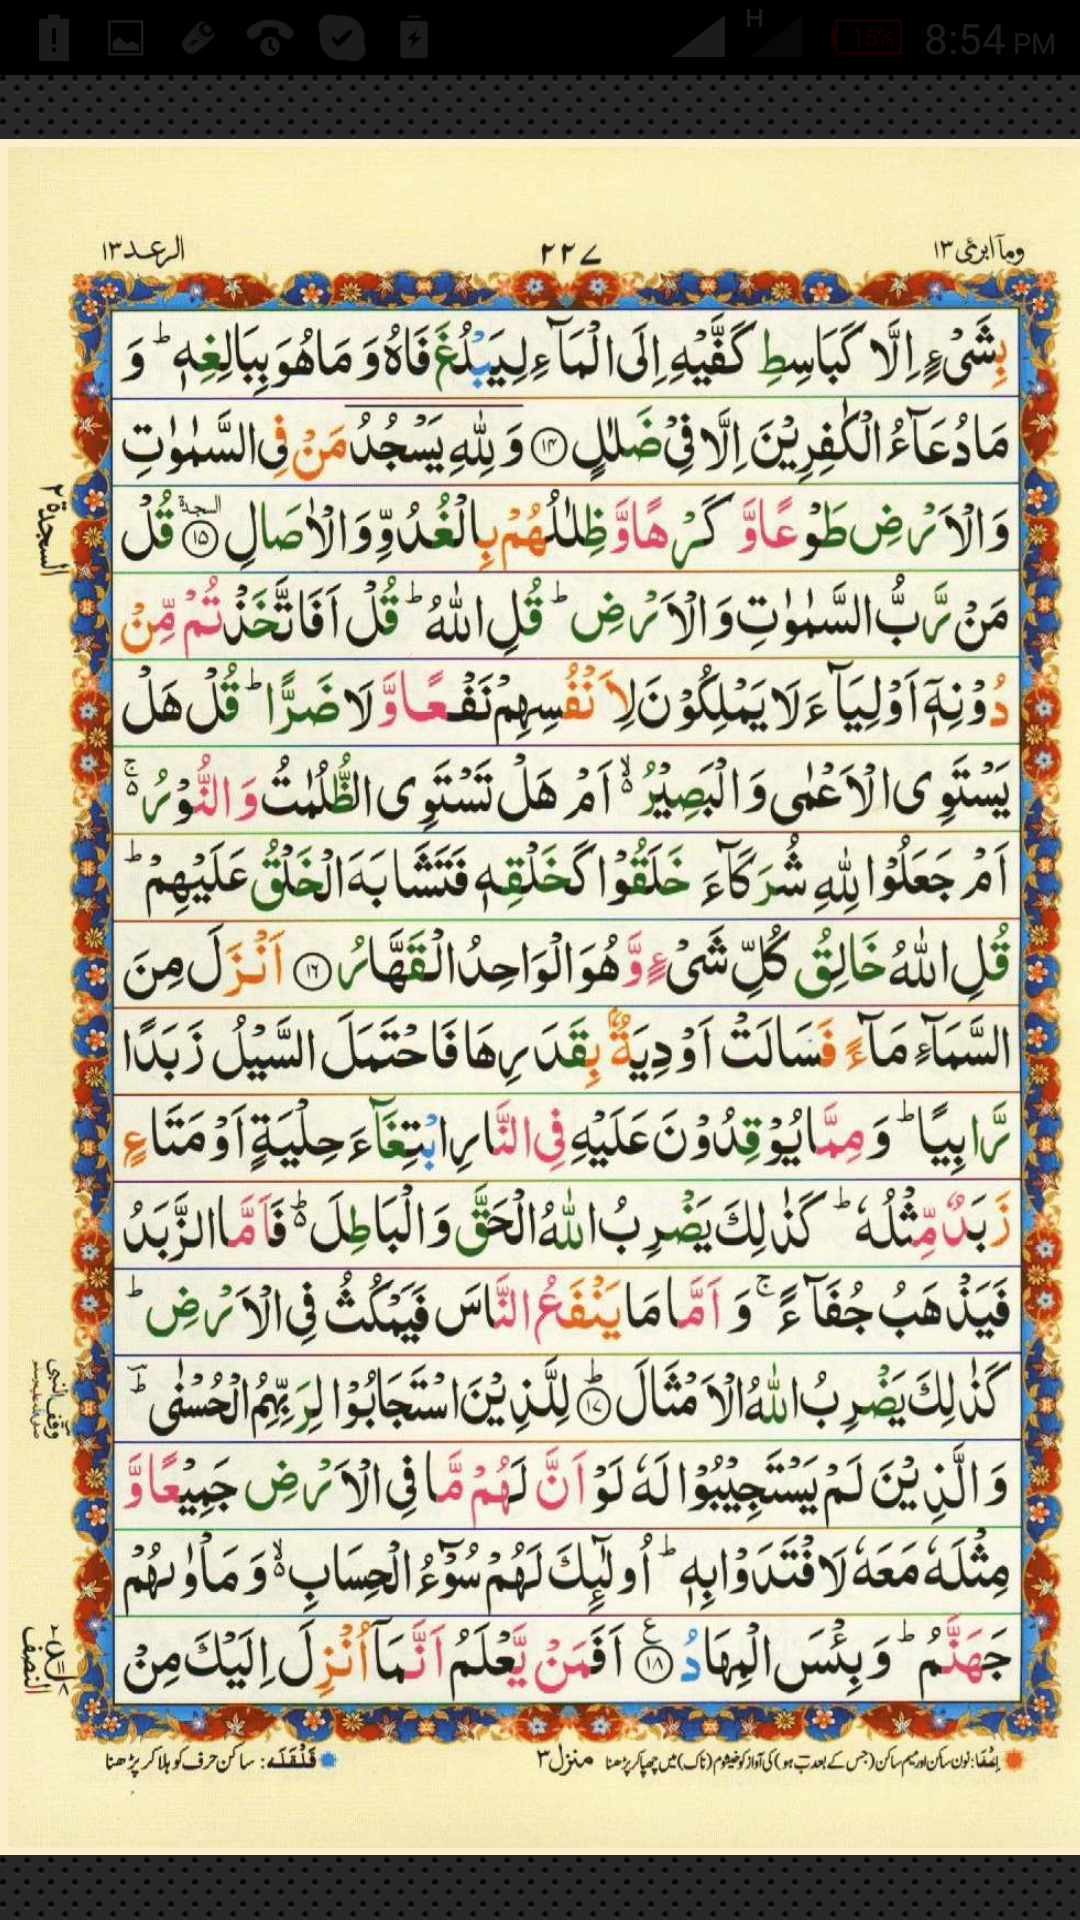 H 15% 8:54 PM
ومآ ابرئ ١٣ ٢٢٧ الرعد ١٣
بِشَىْءٍ اِلَّا كَبَاسِطِ كَفَّيْهِ اِلَى الْمَآءِ لِيَبْلُغَ فَاهُ وَ مَا هُوَ بِبَالِغِهٖ ؕ وَ
مَا دُعَآءُ الْكٰفِرِيْنَ اِلَّا فِىْ ضَلٰلٍ ۝۱۴ وَ لِلّٰهِ يَسْجُدُ مَنْ فِى السَّمٰوٰتِ
وَالْاَرْضِ طَوْعًا وَّ كَرْهًا وَّ ظِلٰلُهُمْ بِالْغُدُوِّ وَالْاٰصَالِ ۝۱۵ السجدة قُلْ
السجدة ٢
مَنْ رَّبُّ السَّمٰوٰتِ وَالْاَرْضِ ؕ قُلِ اللّٰهُ ؕ قُلْ اَفَاتَّخَذْتُمْ مِّنْ
دُوْنِهٖۤ اَوْلِيَآءَ لَا يَمْلِكُوْنَ لِاَنْفُسِهِمْ نَفْعًا وَّ لَا ضَرًّا ؕ قُلْ هَلْ
يَسْتَوِى الْاَعْمٰى وَ الْبَصِيْرُ ۙ۬ اَمْ هَلْ تَسْتَوِى الظُّلُمٰتُ وَ النُّوْرُ ۚ۬
اَمْ جَعَلُوْا لِلّٰهِ شُرَكَآءَ خَلَقُوْا كَخَلْقِهٖ فَتَشَابَهَ الْخَلْقُ عَلَيْهِمْ ؕ
قُلِ اللّٰهُ خَالِقُ كُلِّ شَىْءٍ وَّ هُوَ الْوَاحِدُ الْقَهَّارُ ۝۱۶ اَنْزَلَ مِنَ
السَّمَآءِ مَآءً فَسَالَتْ اَوْدِيَةٌۢ بِقَدَرِهَا فَاحْتَمَلَ السَّيْلُ زَبَدًا
رَّابِيًا ؕ وَ مِمَّا يُوْقِدُوْنَ عَلَيْهِ فِى النَّارِ ابْتِغَآءَ حِلْيَةٍ اَوْ مَتَاعٍ
زَبَدٌ مِّثْلُهٗ ؕ كَذٰلِكَ يَضْرِبُ اللّٰهُ الْحَقَّ وَ الْبَاطِلَ ؕ۬ فَاَمَّا الزَّبَدُ
فَيَذْهَبُ جُفَآءً ۚ وَ اَمَّا مَا يَنْفَعُ النَّاسَ فَيَمْكُثُ فِى الْاَرْضِ ؕ
كَذٰلِكَ يَضْرِبُ اللّٰهُ الْاَمْثَالَ ؕ۝۱۷ لِلَّذِيْنَ اسْتَجَابُوْا لِرَبِّهِمُ الْحُسْنٰى ؕؔ
وقف النبى
وَ الَّذِيْنَ لَمْ يَسْتَجِيْبُوْا لَهٗ لَوْ اَنَّ لَهُمْ مَّا فِى الْاَرْضِ جَمِيْعًا وَّ
مِثْلَهٗ مَعَهٗ لَافْتَدَوْا بِهٖ ؕ اُولٰٓئِكَ لَهُمْ سُوْٓءُ الْحِسَابِ ۙ۬ وَ مَاْوٰىهُمْ
جَهَنَّمُ ؕ وَ بِئْسَ الْمِهَادُ ۝۱۸ ع اَفَمَنْ يَّعْلَمُ اَنَّمَاۤ اُنْزِلَ اِلَيْكَ مِنْ
النصف
اِخْفَا: نون ساکن اور میم ساکن (جس کے بعد ب ہو) کی آواز کو خیشوم (ناک) میں چھپا کر پڑھنا منزل ٣ قَلْقَلَه: ساکن حرف کو ہلا کر پڑھنا